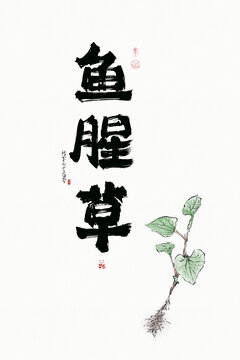 鱼腥草